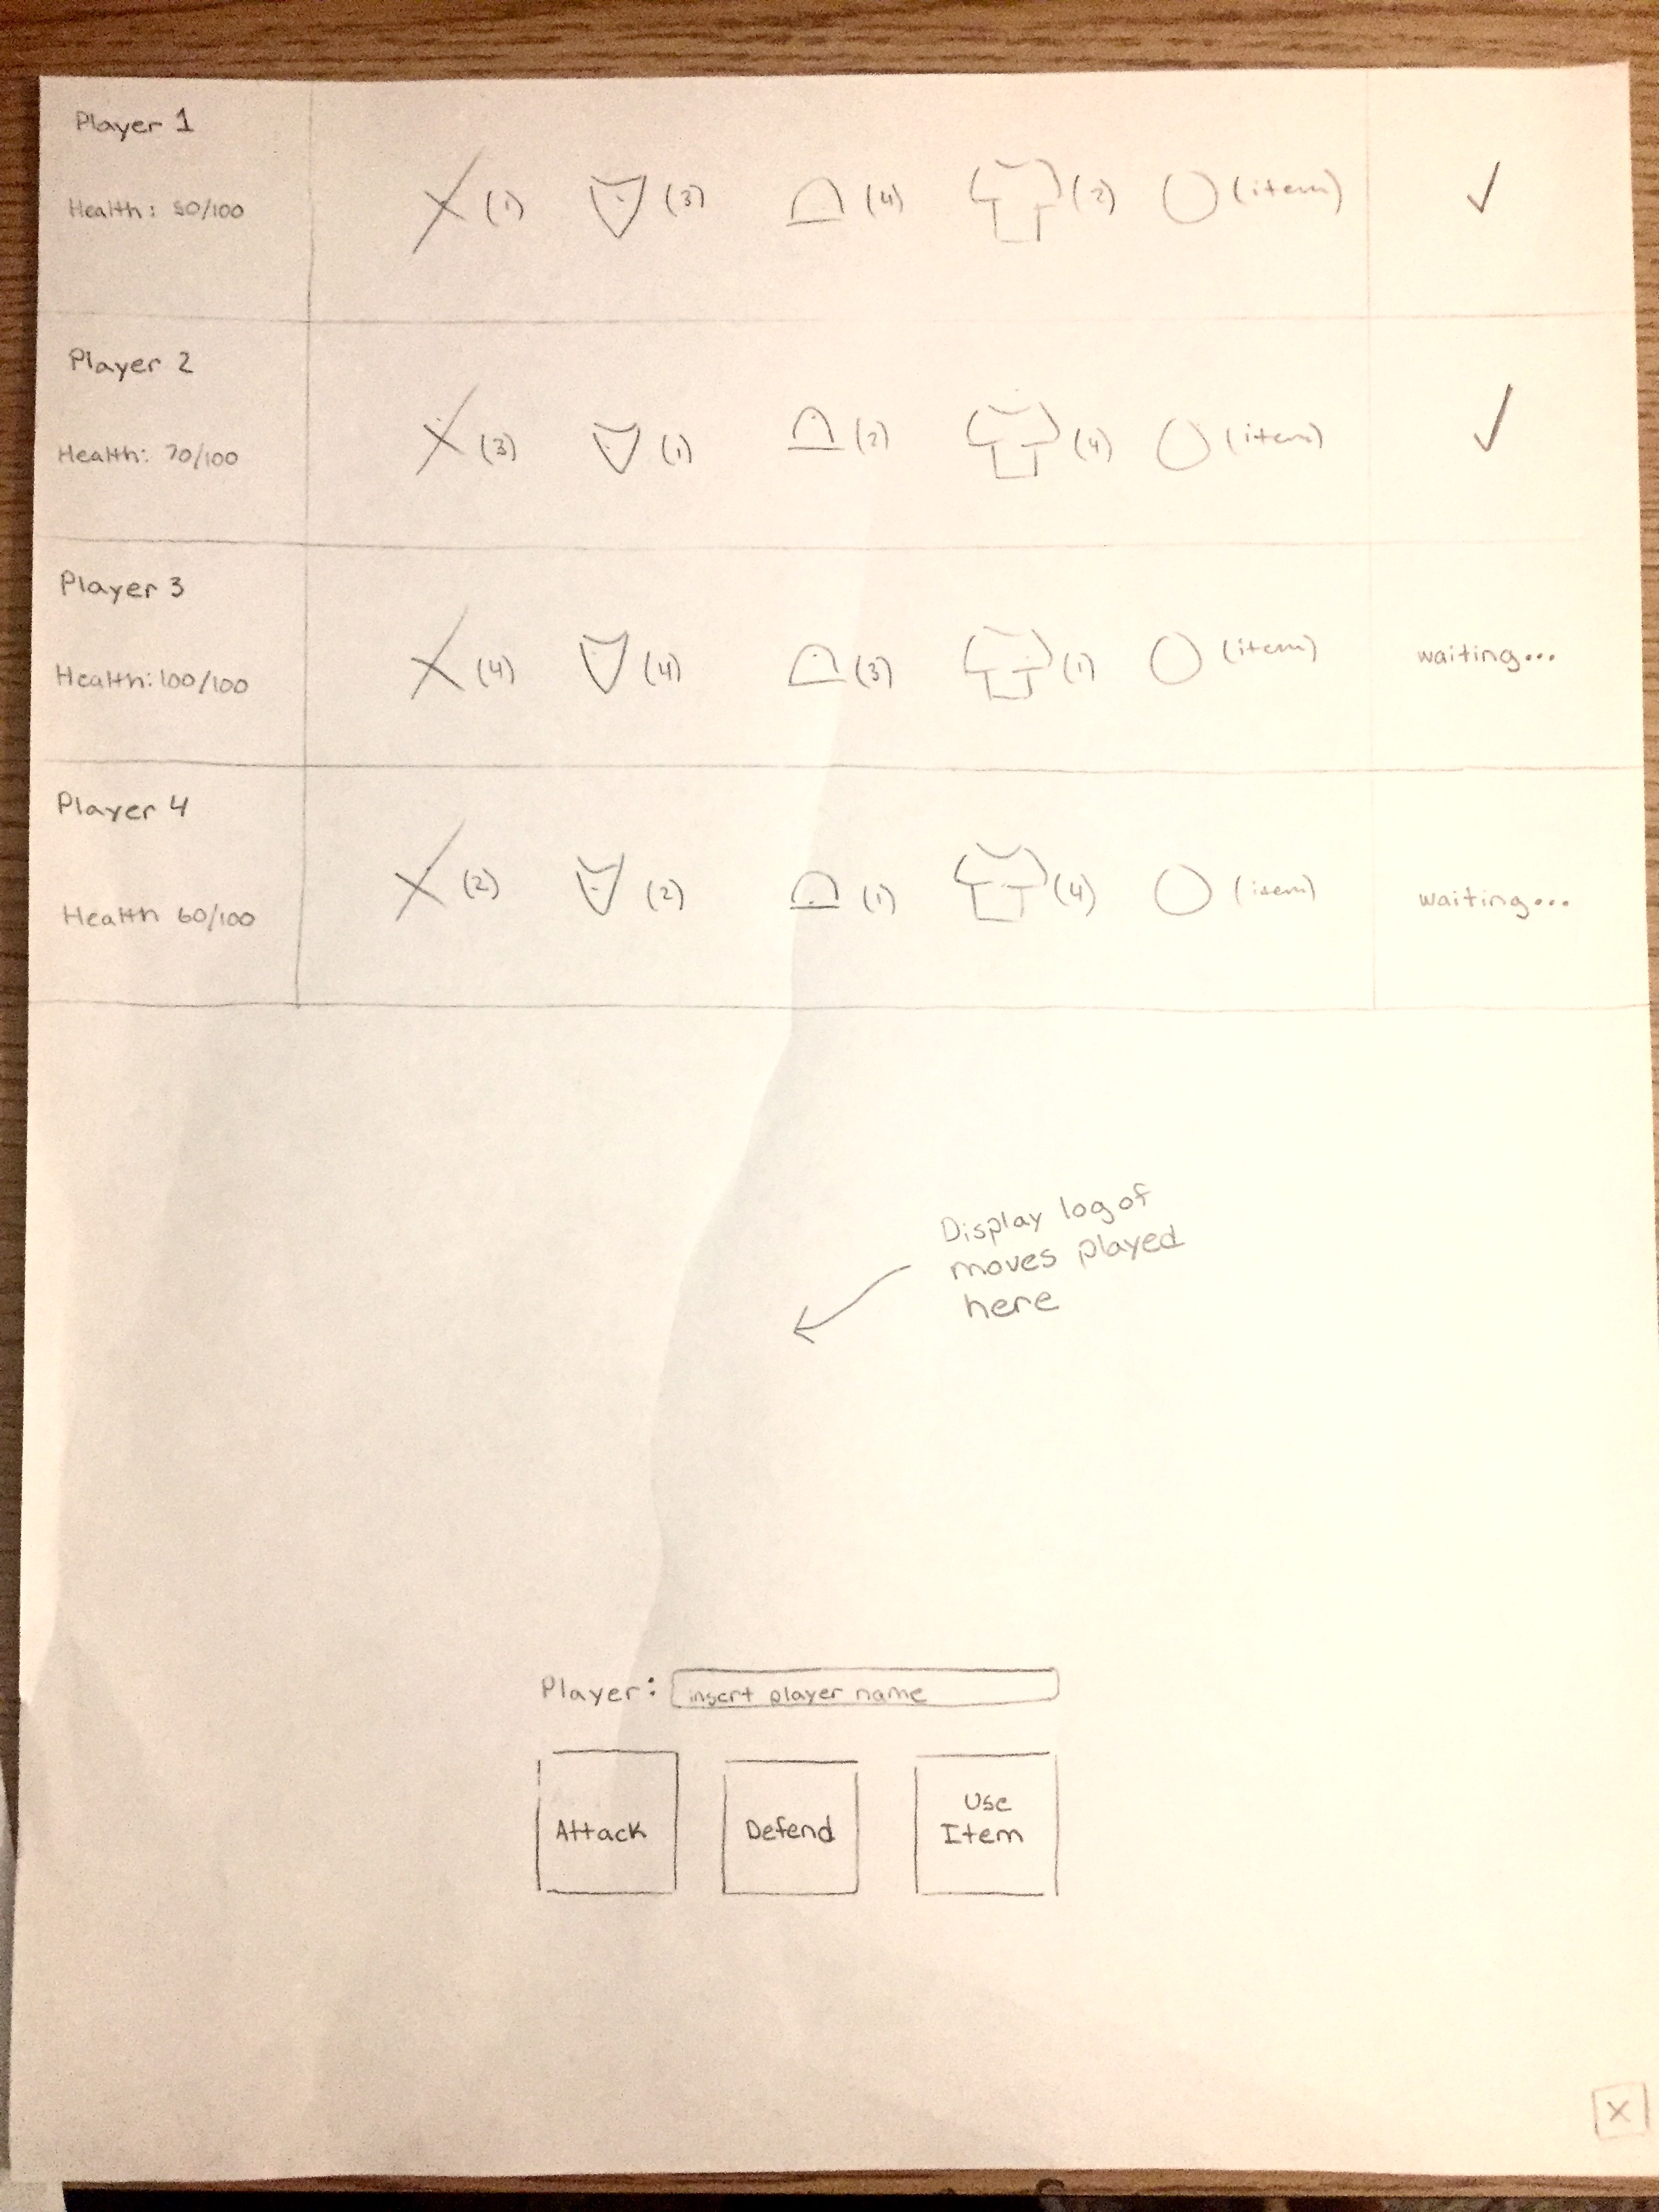 Player 1
Health: 50/100
(1) (3) (4) (2) (item)
✓
Player 2
Health: 70/100
(3) (1) (2) (4) (item)
✓
Player 3
Health: 100/100
(4) (4) (3) (1) (item)
waiting...
Player 4
Health 60/100
(2) (2) (1) (4) (item)
waiting...
Display log of
moves played
here
Player: insert player name
Attack
Defend
Use
Item
X